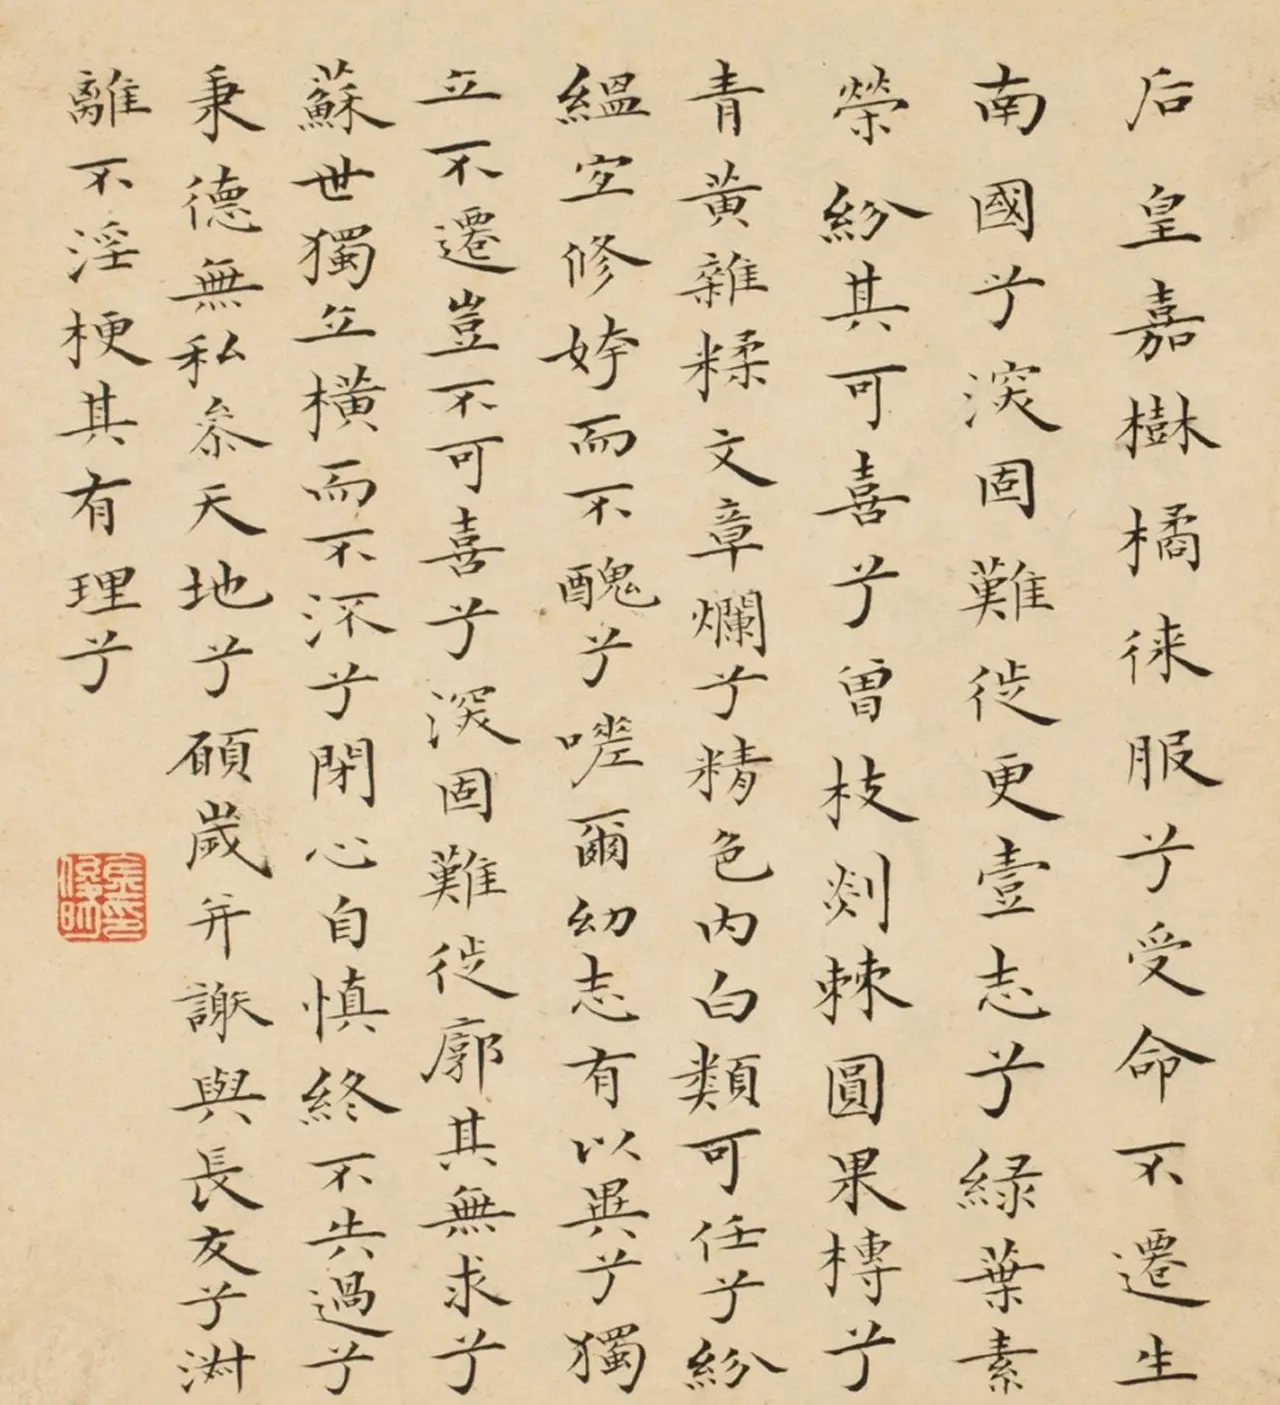 后皇嘉樹橘徠服兮受命不遷生
南國兮深固難徙更壹志兮綠葉素
榮紛其可喜兮曾枝剡棘圓果槫兮
青黃雜糅文章爛兮精色內白類可任兮紛
縕宜修姱而不醜兮嗟爾幼志有以異兮獨
立不遷豈不可喜兮深固難徙廓其無求兮
蘇世獨立橫而不流兮閉心自慎終不失過兮
秉德無私參天地兮願歲并謝與長友兮淑
離不淫梗其有理兮